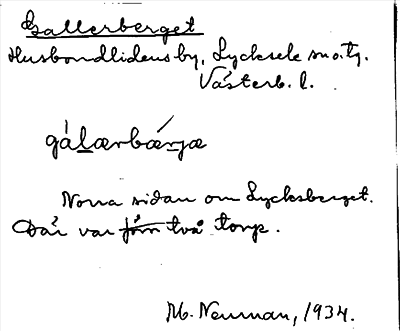 Gallerberget
Husbondlidens by, Lycksele sn o. tg.
Västerb. l.
gálærbærjæ
Norra sidan om Lycksberget.
Där var två torp.
M. Neuman, 1934.